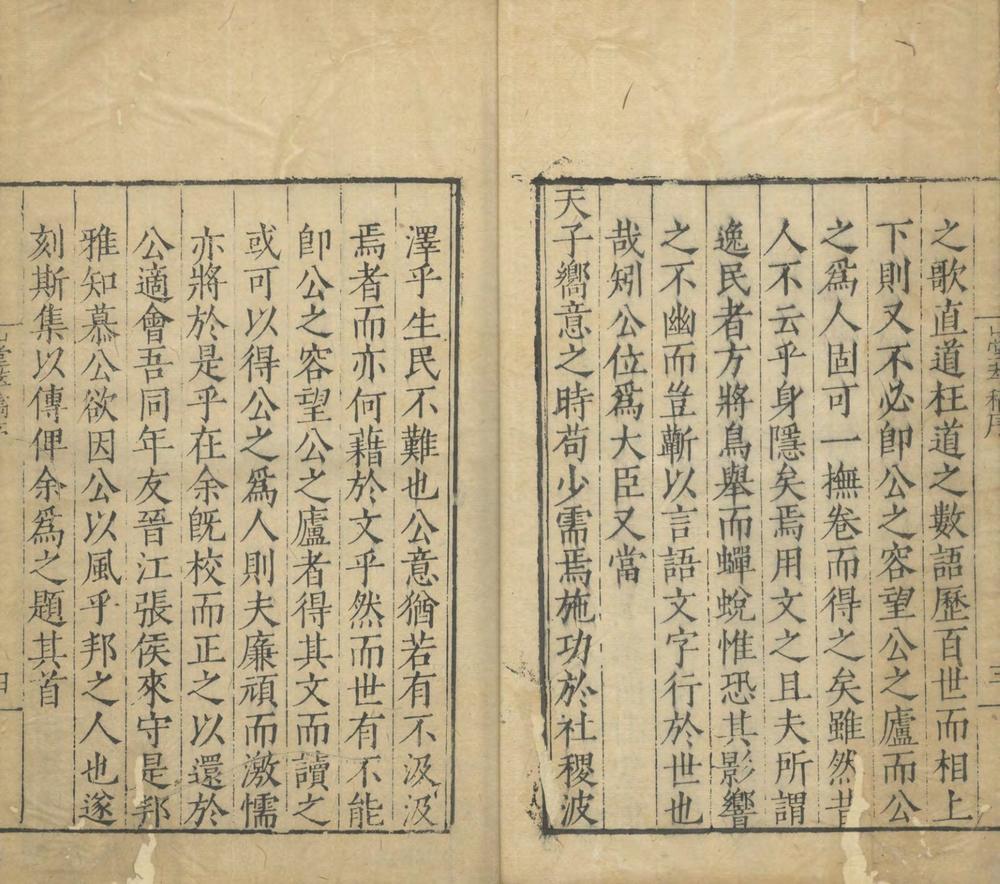 之歌直道枉道之數語歷百世而相上
下則又不必卽公之容望公之廬而公
之爲人固可一撫卷而得之矣雖然昔
人不云乎身隱矣焉用文之且夫所謂
逸民者方將鳥舉而蟬蛻惟恐其影響
之不幽而豈蘄以言語文字行於世也
哉矧公位爲大臣又當
天子嚮意之時苟少需焉施功於社稷波
澤乎生民不難也公意猶若有不汲汲
焉者而亦何藉於文乎然而世有不能
卽公之容望公之廬者得其文而讀之
或可以得公之爲人則夫廉頑而激懦
亦將於是乎在余旣校而正之以還於
公適會吾同年友晉江張侯來守是邦
雅知慕公欲因公以風乎邦之人也遂
刻斯集以傳俾余爲之題其首